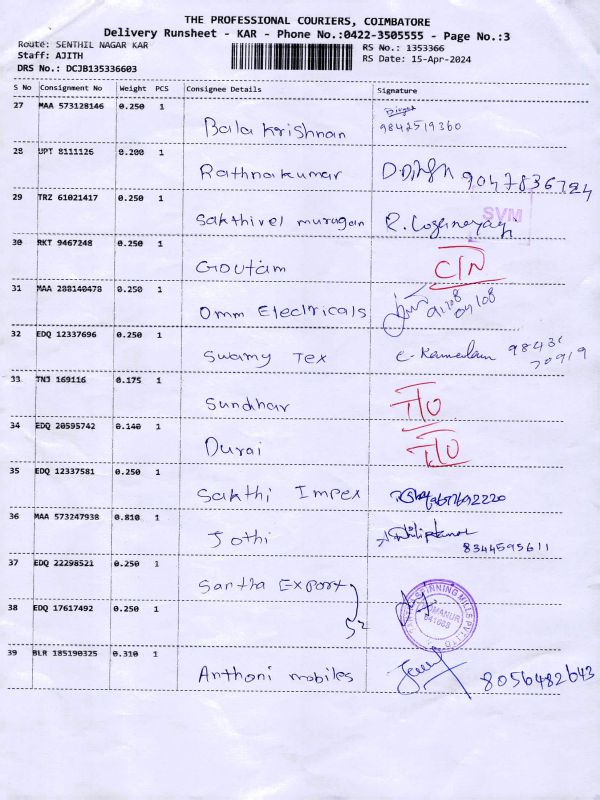 THE PROFESSIONAL COURIERS, COIMBATORE
Delivery Runsheet - KAR - Phone No.:0422-3505555 - Page No.:3
Route: SENTHIL NAGAR KAR
RS No.: 1353366
Staff: AJITH
RS Date: 15-Apr-2024
DRS No.: DCJB135336603
S No Consignment No Weight PCS Consignee Details Signature
27 MAA 573128146 0.250 1
Bala Krishnan 9842519360
28 UPT 8111126 0.200 1
Rathnakumar 9047836724
29 TRZ 61021417 0.250 1
Sakthivel murugan
SVM
30 RKT 9467248 0.250 1
Goutam C/N
31 MAA 288140478 0.250 1
Omm Electricals
32 EDQ 12337696 0.250 1
Swamy Tex 98431
70919
33 TNJ 169116 0.175 1
Sundhar I/O
34 EDQ 20595742 0.140 1
Durai I/O
35 EDQ 12337581 0.250 1
Sakthi Impex
36 MAA 573247938 0.810 1
Jothi
8344595611
37 EDQ 22298521 0.250 1
Santha Export
38 EDQ 17617492 0.250 1
52
SPINNING MILLS PVT LTD
641668
39 BLR 185190325 0.310 1
Anthoni mobiles 8056482643